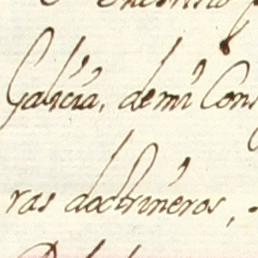 Galicia, de mi Cons
ras doctrineros,